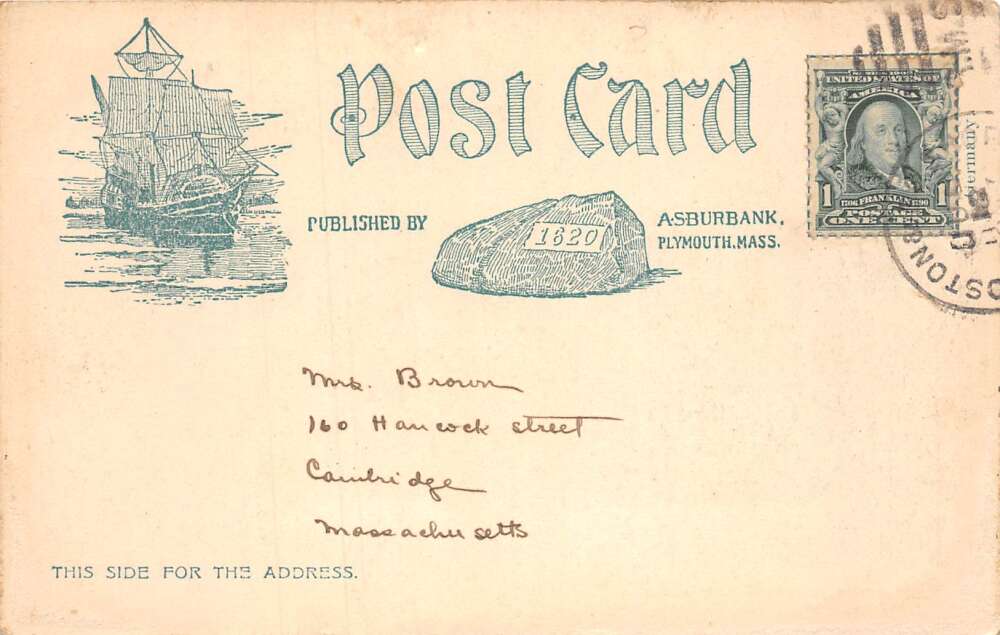 Post Card
PUBLISHED BY
1620
A.S.BURBANK.
PLYMOUTH, MASS.
SERIES 1902
UNITED STATES OF
AMERICA
1 1
1706 FRANKLIN 1790
POSTAGE
ONE CENT
Germany.
BOSTON
Mrs. Brown
160 Hancock street
Cambridge
Massachusetts
THIS SIDE FOR THE ADDRESS.